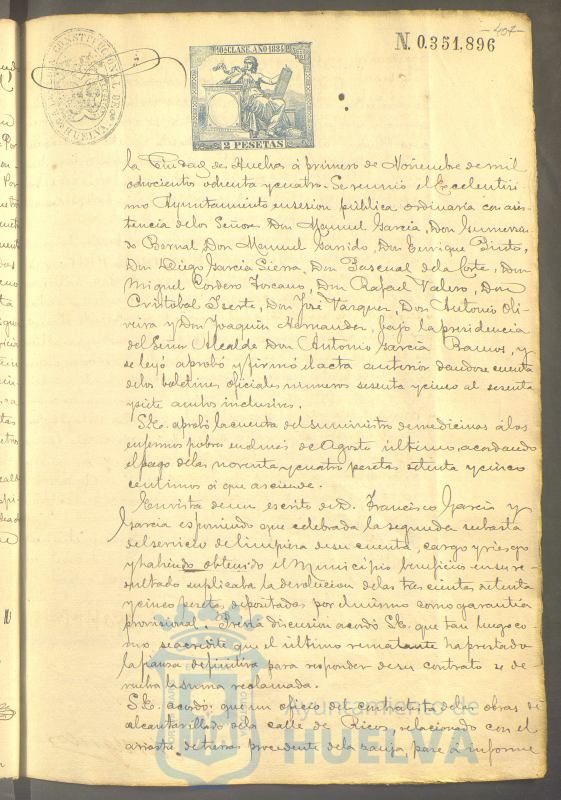 - 407 -
N. 0.351.896
10ª CLASE. AÑO 1884
2 PESETAS
la Ciudad de Huelva á primero de Noviembre de mil
ochocientos ochenta y cuatro. Se reunió el Excelentisi
mo Ayuntamiento en sesion publica ordinaria con asis
tencia de los Señores Don Manuel Garcia, Don Gumersin
do Bernal, Don Manuel Garrido, Don Enrique Pinto,
Don Diego Garcia Sierra, Don Pascual de la Corte, Don
Miguel Cordero Toscano, Don Rafael Valero, Don
Cristobal Iserte, Don José Vazquez, Don Antonio Oli
veira y Don Joaquin Hernandez, bajo la presidencia
del Señor Alcalde Don Antonio Garcia Ramos, y
se leyó aprobó y firmó el acta anterior dandose cuenta
de los boletines oficiales numeros sesenta y cinco al sesenta
y siete ambos inclusives.
S.E. aprobó la cuenta del suministro de medicinas á los
enfermos pobres en el mes de Agosto último, acordando
el pago de las noventa y cuatro pesetas setenta y cinco
centimos á que asciende.
En vista de un escrito de D. Francisco Garcia y
Garcia esponiendo que celebrada la segunda subasta
del servicio de limpieza de su cuenta, cargo y riesgo
y habiendo obtenido el Municipio beneficio en su re
sultado suplicaba la devolucion de las trescientas setenta
y cinco pesetas depositadas por el mismo como garantia
provisional. Previa discusion acordó S.E. que tan luego co
mo se acredite que el último rematante ha prestado
la fianza definitiva para responder de su contrato se de
vuelva la suma reclamada.
S.E. acordó; que un oficio del contratista de las obras de
alcantarillado de la calle de Ricos, relacionado con el
arrastre de tierras procedente de la zanja pase á informe
Ayuntamiento de
HUELVA